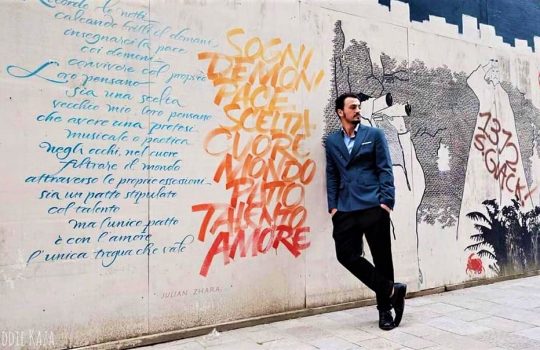 Ricordo le notti
calcando brilli di domani
insegnarci la pace
coi demoni
convivere col proprio
Loro pensano
sia una scelta
vecchio mio loro pensano
che avere una pretesa
musicale o poetica
negli occhi, nel cuore
filtrare il mondo
attraverso le proprie ossessioni
sia un patto stipulato
col talento
ma l'unico patto
è con l'amore
l'unica tregua che vale
JULIAN ZHARA
SOGNI
DEMONI
PACE
SCELTA
CUORE
MONDO
PATTO
TALENTO
AMORE
1312
DDIE KAJA